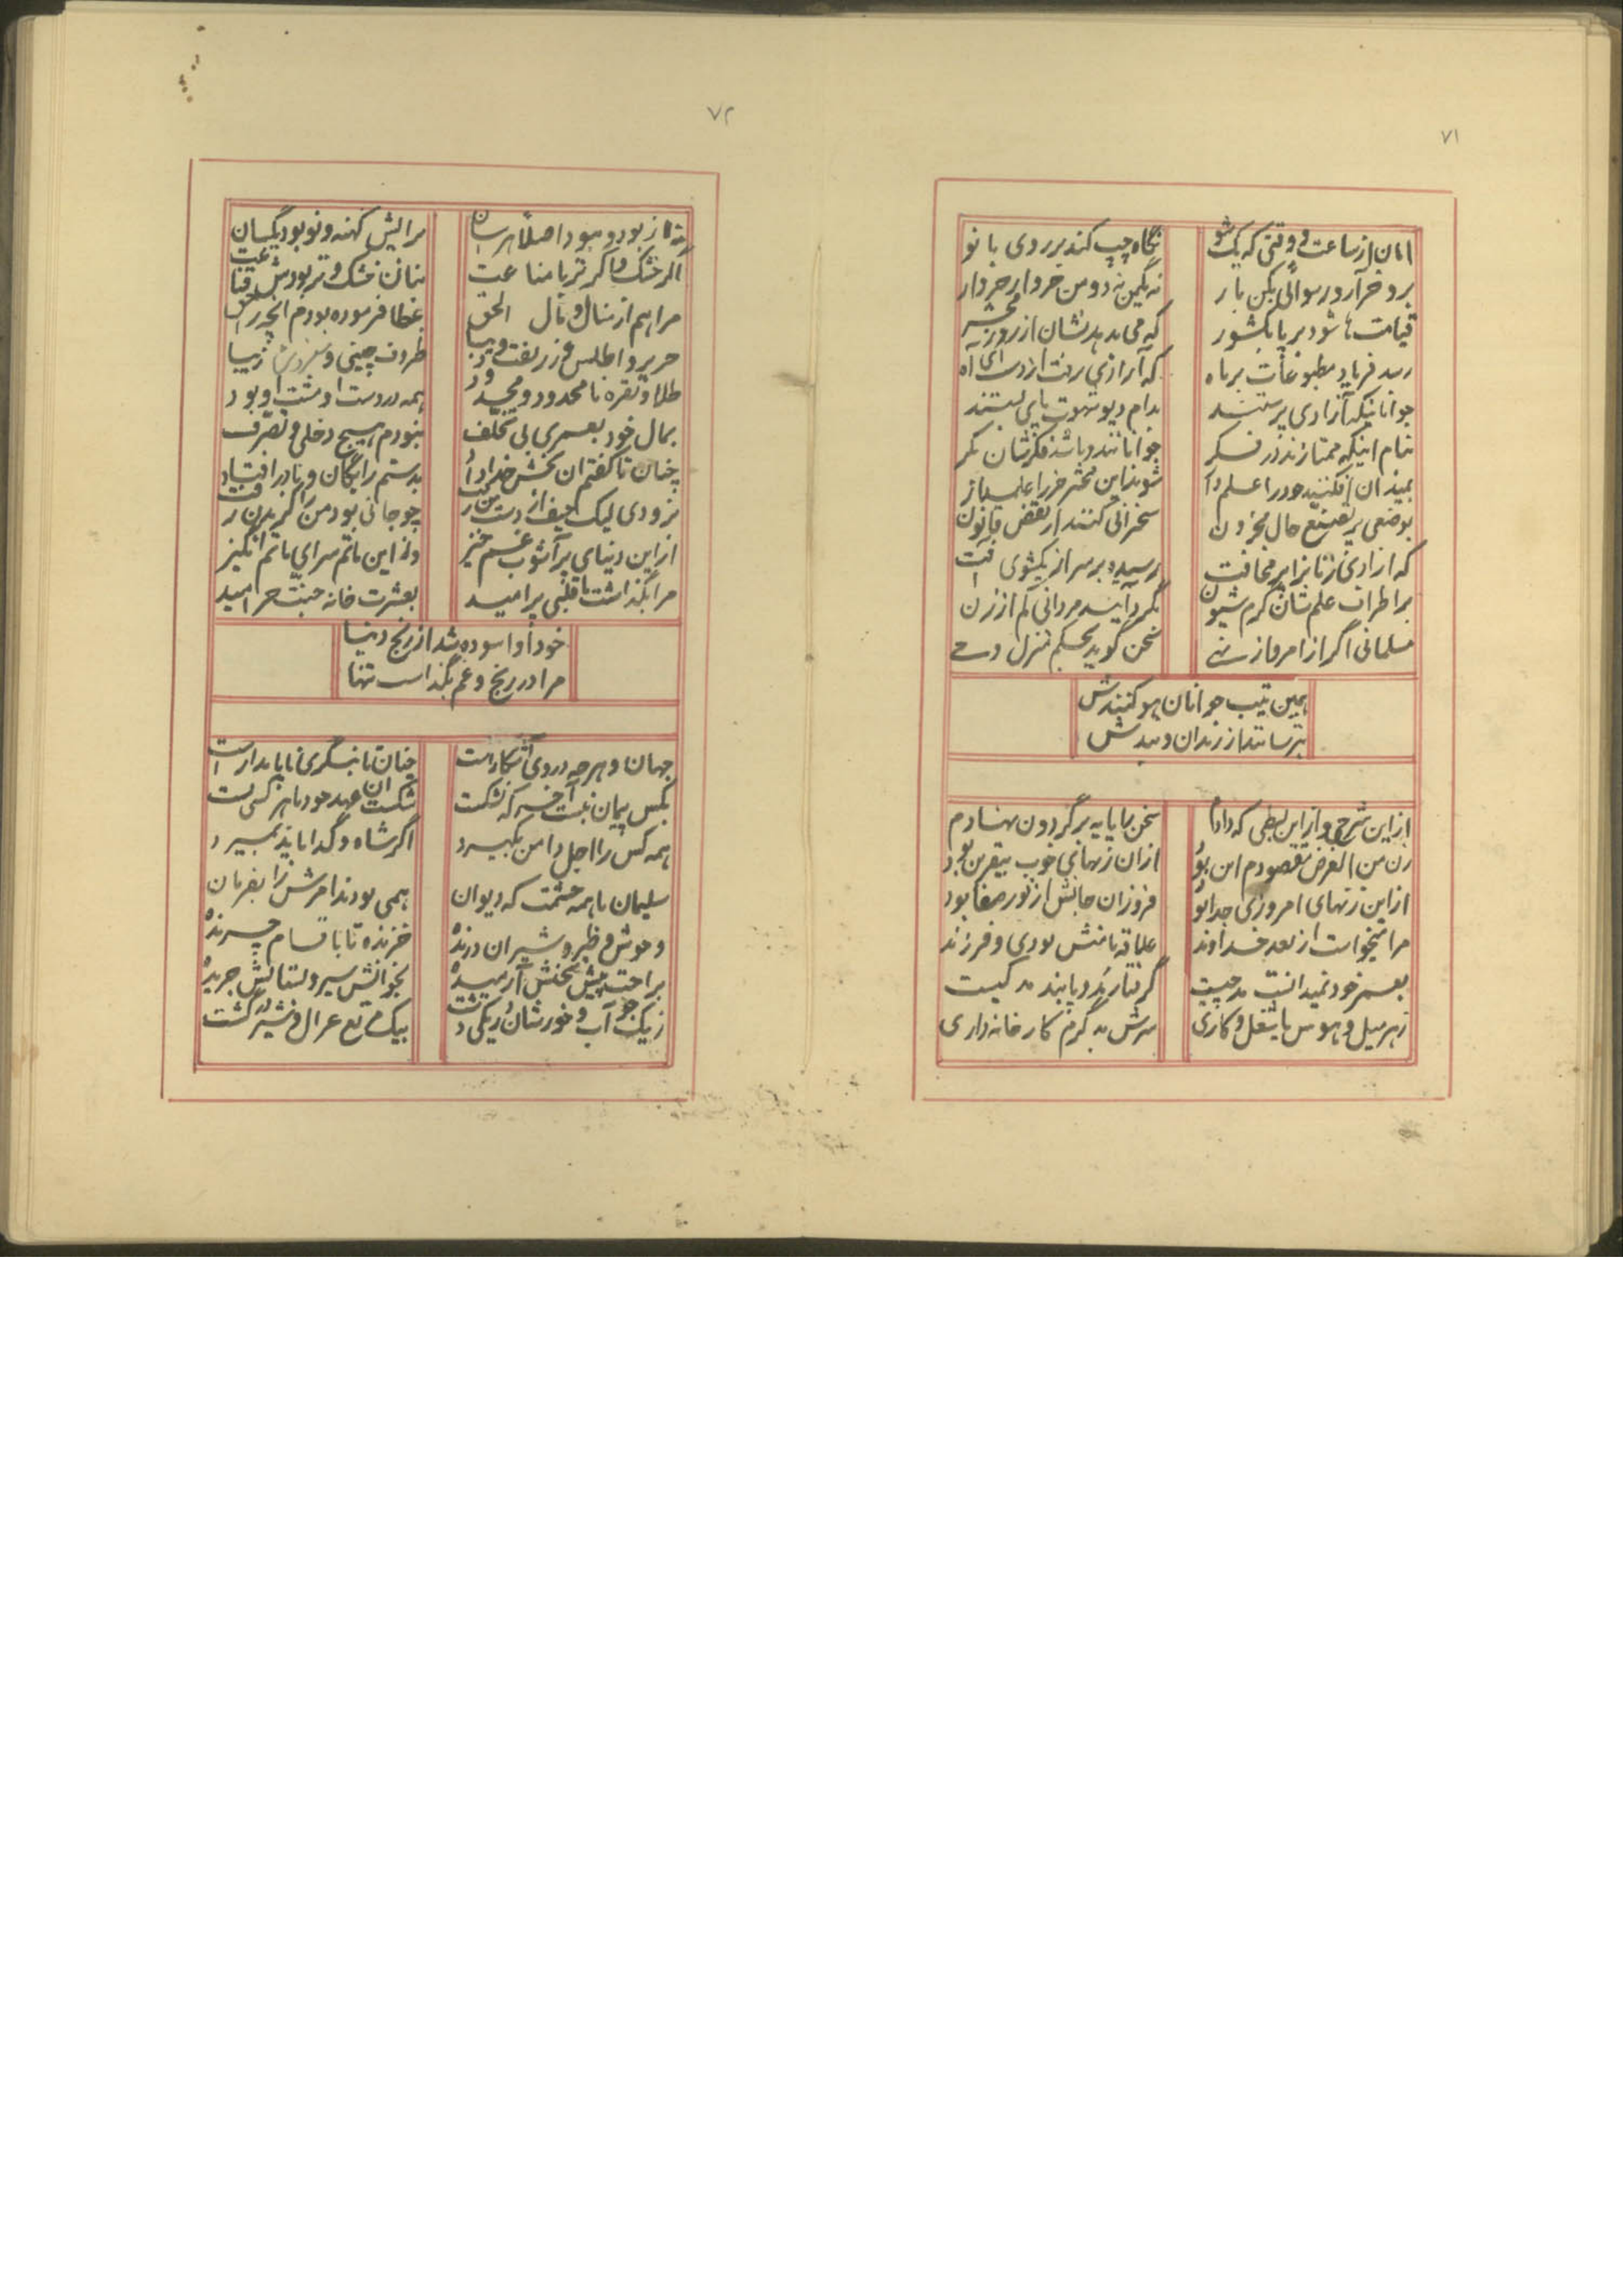 ۷۱
امان از ساعت و وقتی که یک شو
نگاه چپ کند بر روی بانو
برو خر آر و رسوائی بکن بار
نه یکمن نه دو من خروار خروار
قیامت ها شود بر پا بکشور
که می بدهد نشان از روز محشر
رسد فریاد مطبوعات بر ماه
که آزادی برفت از دست ای آه
جوانانیکه آزادی پرستند
بدام دیو شهوت پای بستند
تمام اینکه ممتازند در فکر
جوانانند و باشد فکرشان بکر
بمیدان افکنند خود را علم دار
شوند این محشر خر را علمدار
بوضعی پر تصنع حال محزون
سخنرانی کنند از نقض قانون
که ازادی زنانرا پر مخافت
رسیده بر سر از یکشوی آفت
بر اطراف علم شان گرم شیون
بگرد آیند مردانی کم از زن
مسلمانی اگر از امر و از نهی
سخن گوید بحکم منزل وحی
همین تیپ جوانان هو کنندش
بترسانند از زندان و بندش
از این شرح و از این بسطی که دادم
سخن را پایه بر گردون نهادم
زن من الغرض مقصودم این بود
از ان زنهای خوب بیقرین بود
از این زنهای امروزی جدا بود
فروزان جانش از نور صفا بود
مرا میخواست از بعد خداوند
علاقه با منش بودی و فرزند
بعمر خود نمیدانست مد چیست
گرفتار مد و پابند مد کیست
ز هر میل و هوس یا شغل و کاری
سرش بد گرم کار خانه داری
۷۲
برایش کهنه و نو بود یکسان
اگر خشک و اگر تر با مناعت
بنان خشک و تر بودش قناعت
مرا هم از منال و مال الحق
عطا فرموده بودم آنچه را حق
حریر و اطلس و زربفت و دیبا
ظروف چینی و زیبا
طلا و نقره نامحدود و محدود
همه در دست او مشت او بود
بمال خود بعمری بی تکلف
نبودم هیچ دخلی و تصرف
چنان تا گفتم ان بخش خدا داد
بدستم رایگان و نادر افتاد
بزودی لیک حیف از دست من رفت
چو جانی بود من کز بدن رفت
از این دنیای پر آشوب غم خیز
وز این ماتم سرای ماتم انگیز
مرا بگذاشت با قلبی پر امید
بعشرت خانه جنت خرامید
خود او اسوده شد از رنج دنیا
مرا در رنج و غم بگذاست تنها
جهان و هر چه در وی آشکار است
چنان تا بنگری ناپایدار است
بکس پیمان نبست آخر که نشکست
شکست ان عهد خود با هر کسی بست
همه کس را اجل دامن بگیرد
اگر شاه و گدا باید بمیرد
سلیمان با همه حشمت که دیوان
همی بودند امرش را بفرمان
وحوش و طیر و شیران درنده
خزنده تا باقسام چرنده
براحت میش آرمیده
ز یک جو آب و خورشان ز یکی دشت